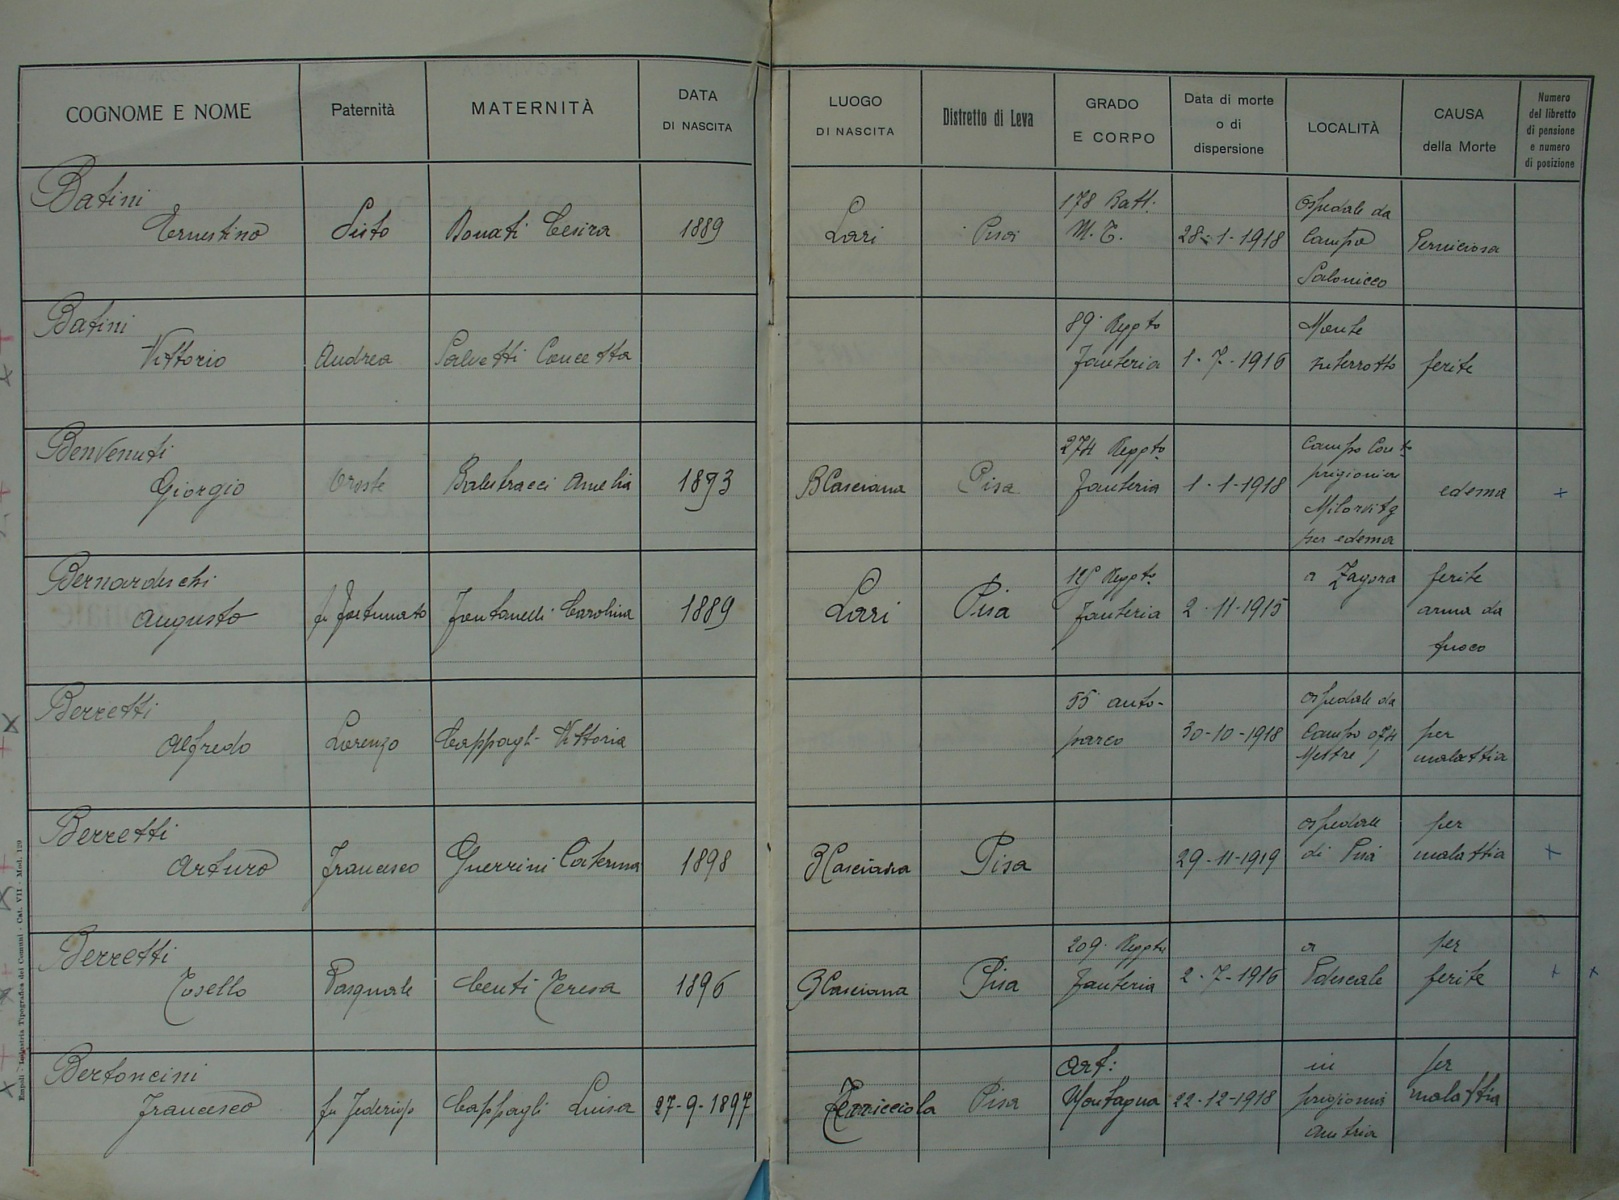 COGNOME E NOME
Paternità
MATERNITÀ
DATA
DI NASCITA
LUOGO
DI NASCITA
Distretto di Leva
GRADO
E CORPO
Data di morte
o di
dispersione
LOCALITÀ
CAUSA
della Morte
Numero
del libretto
di pensione
e numero
di posizione
Batini
Ernestino
Sisto
Donati Cesira
1889
Lari
Pisa
178 Batt.
M. T.
28-1-1918
Ospedale da
Campo
Salonicco
Perniciosa
Batini
Vittorio
Andrea
Salvetti Concetta
89 Reggto
Fanteria
1-7-1916
Monte
interrotto
ferite
Benvenuti
Giorgio
Oreste
Balestracci Amelia
1893
B Casciana
Pisa
274 Reggto
Fanteria
1-1-1918
Campo
prigionia
per edema
edema
+
Bernardeschi
Augusto
fu Fortunato
Fontanelli Carolina
1889
Lari
Pisa
Reggto
Fanteria
2-11-1915
a Zagora
ferite
arma da
fuoco
Berretti
Alfredo
Lorenzo
Cappagli Vittoria
55 auto-
parco
30-10-1918
ospedale da
Campo 024
Mestre
per
malattia
Berretti
Arturo
Francesco
Guerrini Caterina
1898
B Casciana
Pisa
29-11-1919
ospedale
di Pisa
per
malattia
+
Berretti
Tosello
Pasquale
Centi Teresa
1896
B Casciana
Pisa
209 Reggto
Fanteria
2-7-1916
a
per
ferite
+ +
Bertoncini
Francesco
fu Federigo
Cappagli Luisa
27-9-1897
Terricciola
Pisa
Art:
Montagna
22-12-1918
in
prigionia
austria
per
malattia
Empoli - Industria Tipografica dei Comuni - Cat. VII - Mod. 129